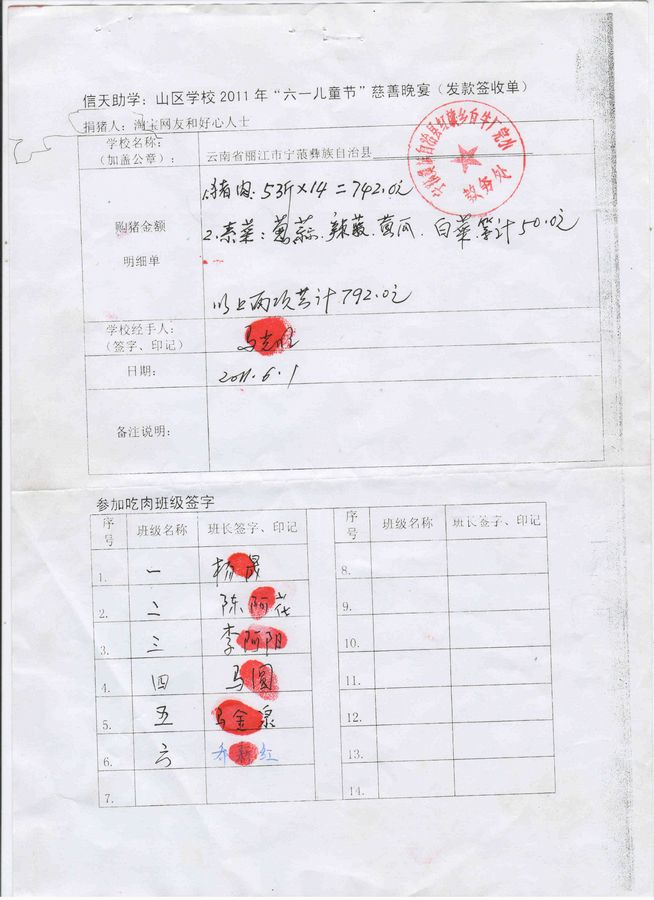 信天助学：山区学校2011年“六一儿童节”慈善晚宴（发款签收单）
捐猪人：淘宝网友和好心人士
学校名称：
（加盖公章）：
云南省丽江市宁蒗彝族自治县
购猪金额
明细单
1.猪肉：53斤×14=742.0元
2.素菜：葱蒜、辣菽、黄瓜、白菜等计50.0元
以上两项共计792.0元
学校经手人：
（签字、印记）
日期：
2011.6.1
备注说明：
总务处
参加吃肉班级签字
序号 班级名称 班长签字、印记 序号 班级名称 班长签字、印记
1. 一 杨晟 8.
2. 二 陈阿花 9.
3. 三 李阿阴 10.
4. 四 马圆 11.
5. 五 马金泉 12.
6. 六 乔新红 13.
7. 14.